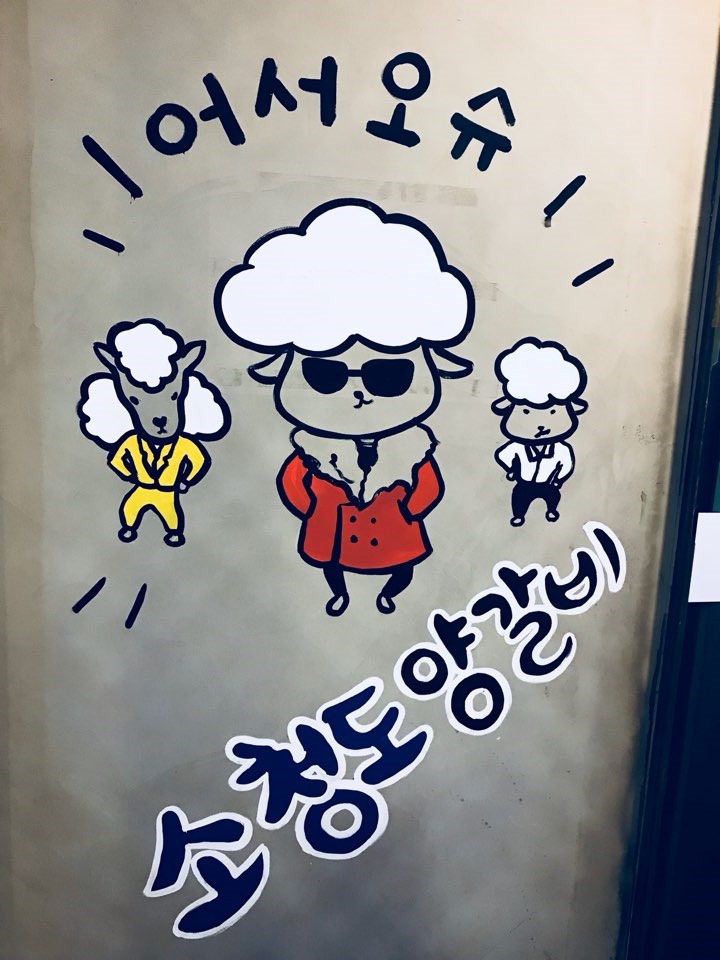 어서오슈
소청도양갈비